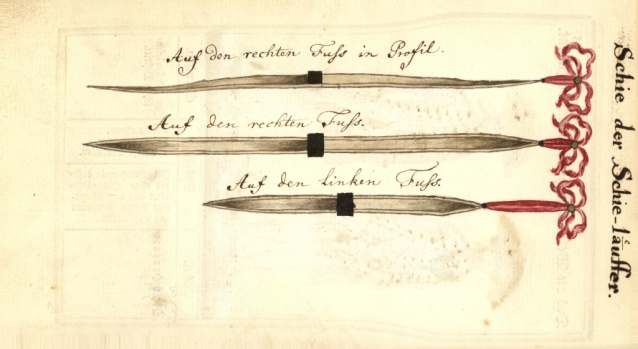 Schie der Schie-läuffer.
Auf den rechten Fuss in Profil.
Auf den rechten Fuss.
Auf den linken Fuss.